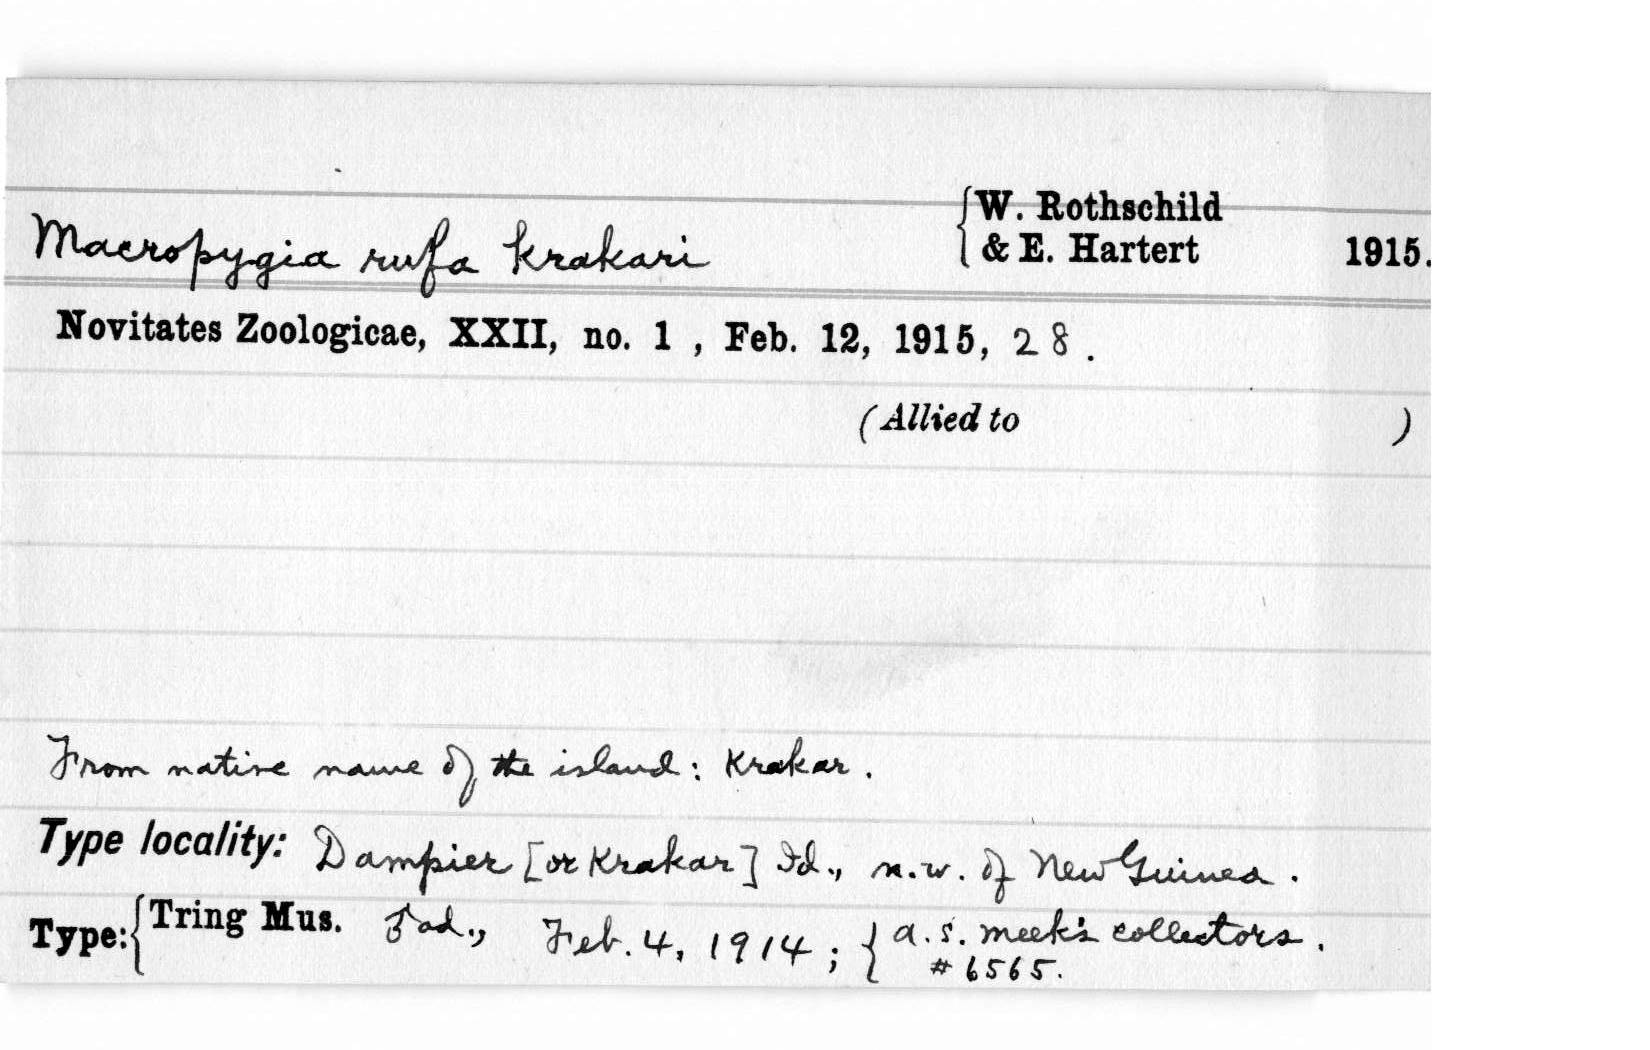 Macropygia rufa krakari { W. Rothschild & E. Hartert 1915.
Novitates Zoologicae, XXII, no. 1 , Feb. 12, 1915, 28 .
(Allied to )
From native name of the island: Krakar .
Type locality: Dampier [or Krakar] Id., n.w. of New Guinea .
Type: { Tring Mus. ad., Feb. 4, 1914 ; { A. S. Meek's collectors .
# 6565.